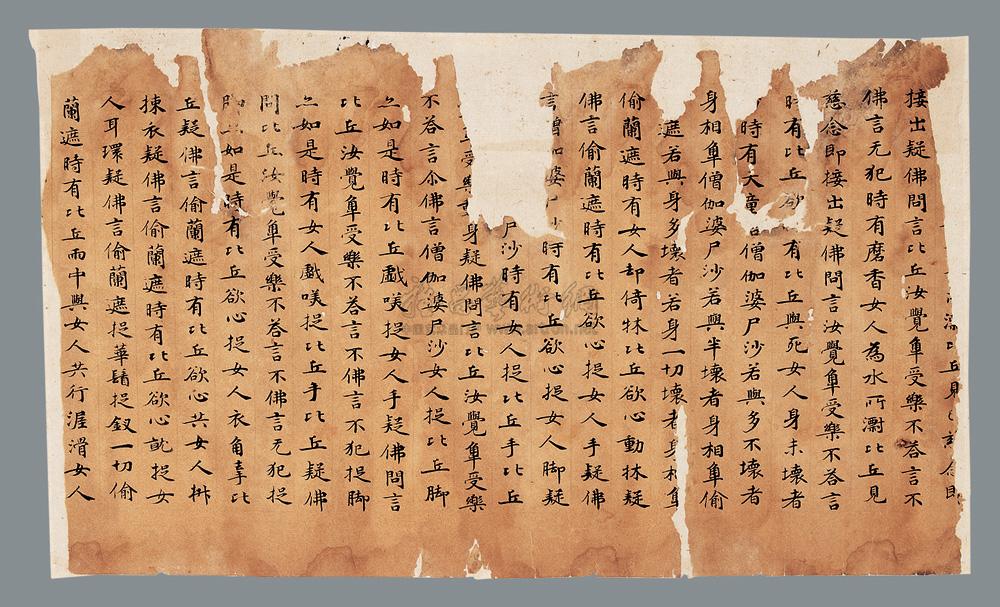 漂比丘見已慈念即
接出疑佛問言比丘汝覺觸受樂不荅言不
佛言无犯時有磨香女人為水所漂比丘見
慈念即接出疑佛問言汝覺觸受樂不荅言
時有比丘欲 有比丘與死女人身未壞者
時有天童 僧伽婆尸沙若與多不壞者
身相觸僧伽婆尸沙若與半壞者身相觸偷
遮若與身多壞者若身一切壞者身相觸
偷蘭遮時有女人却倚牀比丘欲心動牀疑
佛言偷蘭遮時有比丘欲心捉女人手疑佛
言僧伽婆尸沙時有比丘欲心捉女人脚疑
尸沙時有女人捉比丘手比丘
受樂 身疑佛問言比丘汝覺觸受樂
不荅言尒佛言僧伽婆尸沙女人捉比丘脚
亦如是時有比丘戲咲捉女人手疑佛問言
比丘汝覺觸受樂不荅言不佛言不犯捉脚
亦如是時有女人戲咲捉比丘手比丘疑佛
問比丘汝覺觸受樂不荅言不佛言无犯捉
脚亦如是時有比丘欲心捉女人衣角牽比
丘疑佛言偷蘭遮時有比丘欲心共女人
捒衣疑佛言偷蘭遮時有比丘欲心就捉女
人耳環疑佛言偷蘭遮捉華鬘捉釵一切偷
蘭遮時有比丘雨中與女人共行渥滑女人